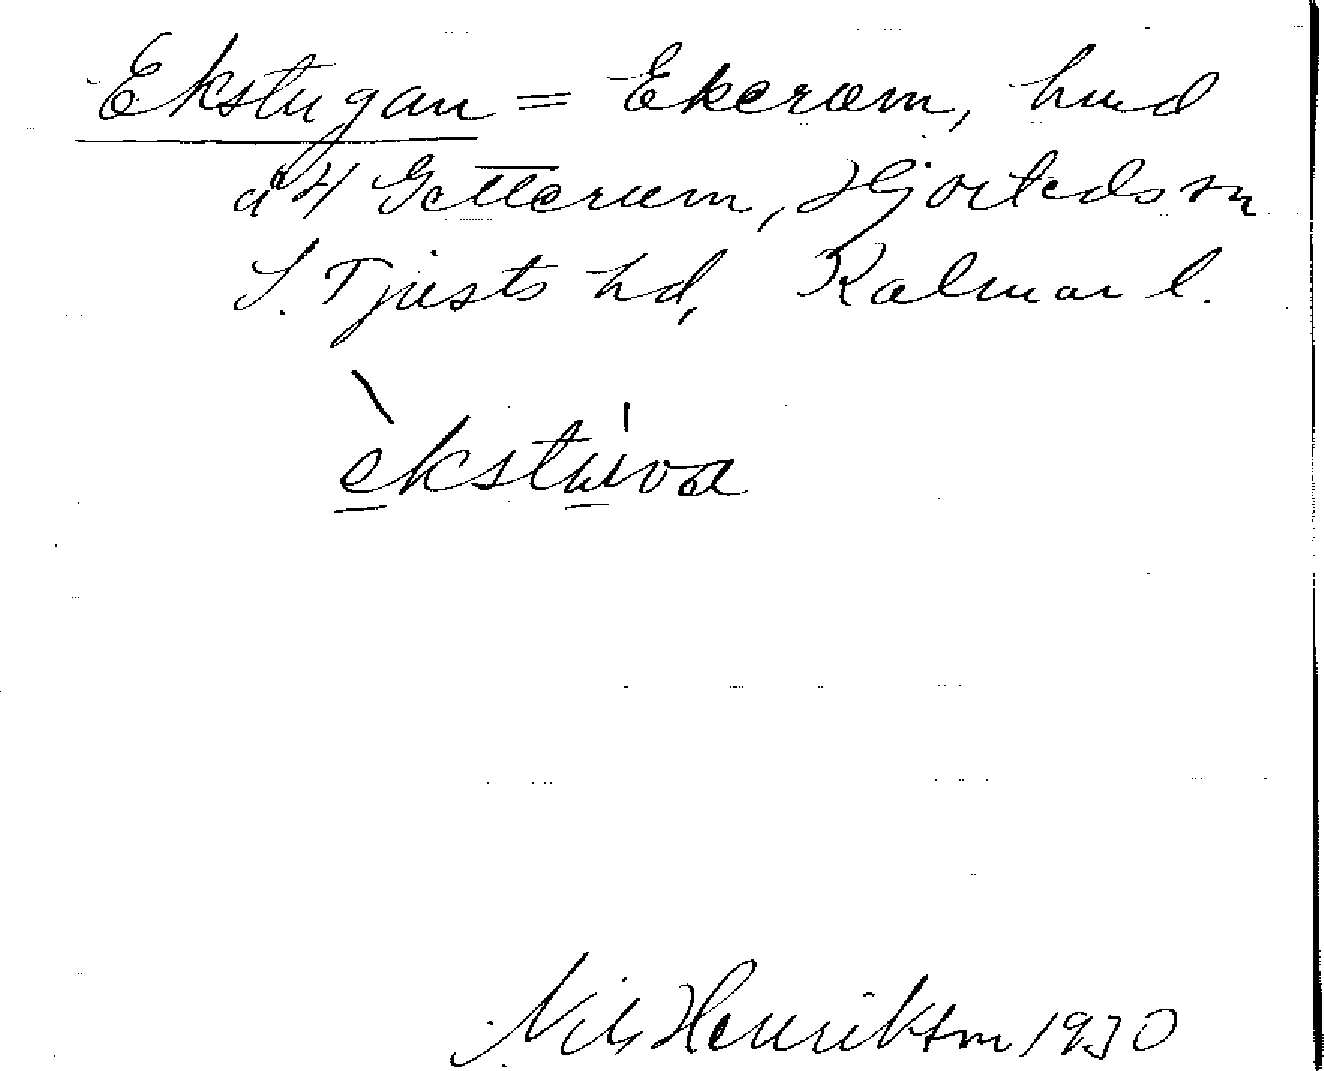 Ekstugan = Ekerum, hmd
å 4 Getterum, Hjorteds sn
S. Tjusts hd, Kalmar l.
èkstu̍va
Nils Henrikson 1930